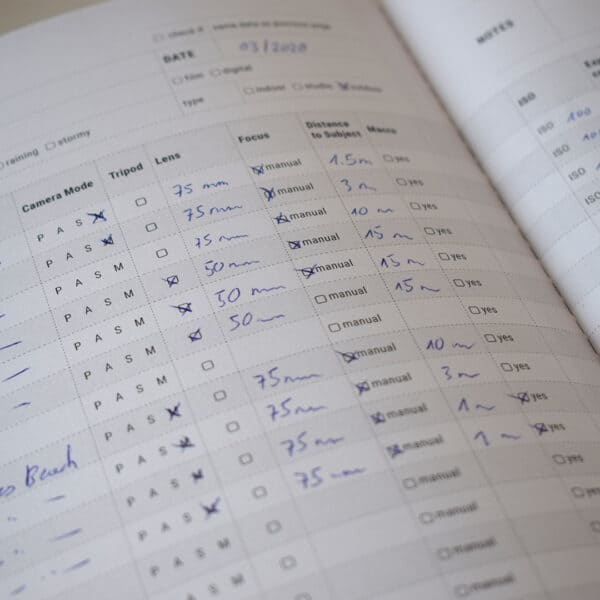 check if same data as previous page
DATE 03/2020
film digital
type indoor studio outdoor
raining stormy
Camera Mode Tripod Lens Focus Distance to Subject Macro
P A S M 75 mm manual 1.5m yes
P A S M 75mm manual 3 m yes
P A S M 75mm manual 10 m yes
P A S M 50mm manual 15 m yes
P A S M 50 mm manual 15 m yes
P A S M 50 mm manual 15 m yes
P A S M manual yes
P A S M 75mm manual 10 m yes
Beach P A S M 75mm manual 3 m yes
P A S M 75mm manual 1 m yes
P A S M 75 mm manual 1 m yes
P A S M manual yes
P A S M manual yes
manual
manual
NOTES
ISO
ISO 100
ISO
ISO
ISO